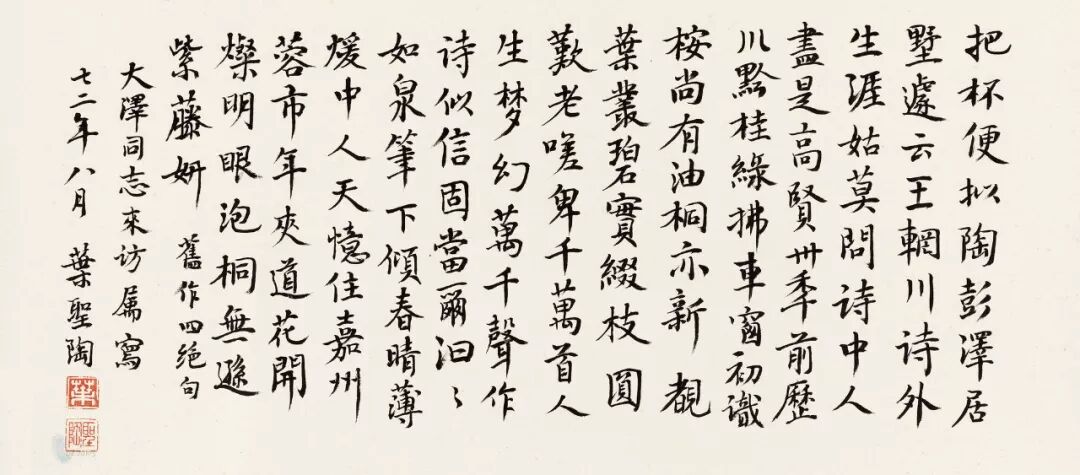 把杯便拟陶彭澤居
墅遽云王輞川诗外
生涯姑莫問诗中人
盡是高賢卅季前歷
川黔桂綠拂車窗初識
桉尚有油桐亦新覩
葉叢碧實綴枝圓
歎老嗟卑千萬首人
生梦幻萬千聲作
诗似信固當爾汩〻
如泉筆下傾春晴薄
煖中人天憶住嘉州
蓉市年夾道花開
燦明眼泡桐無遜
紫藤妍 舊作四绝句
大澤同志來访属寫
七二年八月 葉聖陶
葉
聖陶